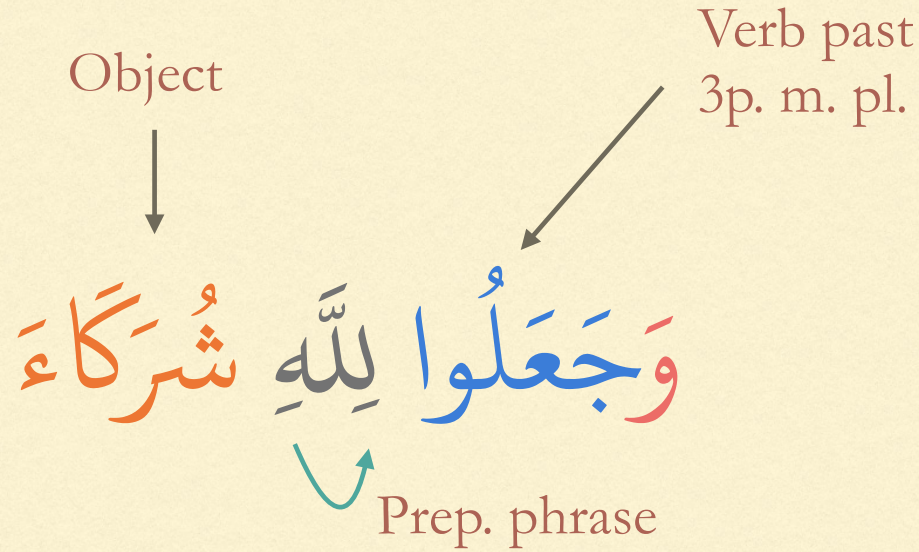 Object
Verb past
3p. m. pl.
وَجَعَلُوا لِلَّهِ شُرَكَاءَ
Prep. phrase